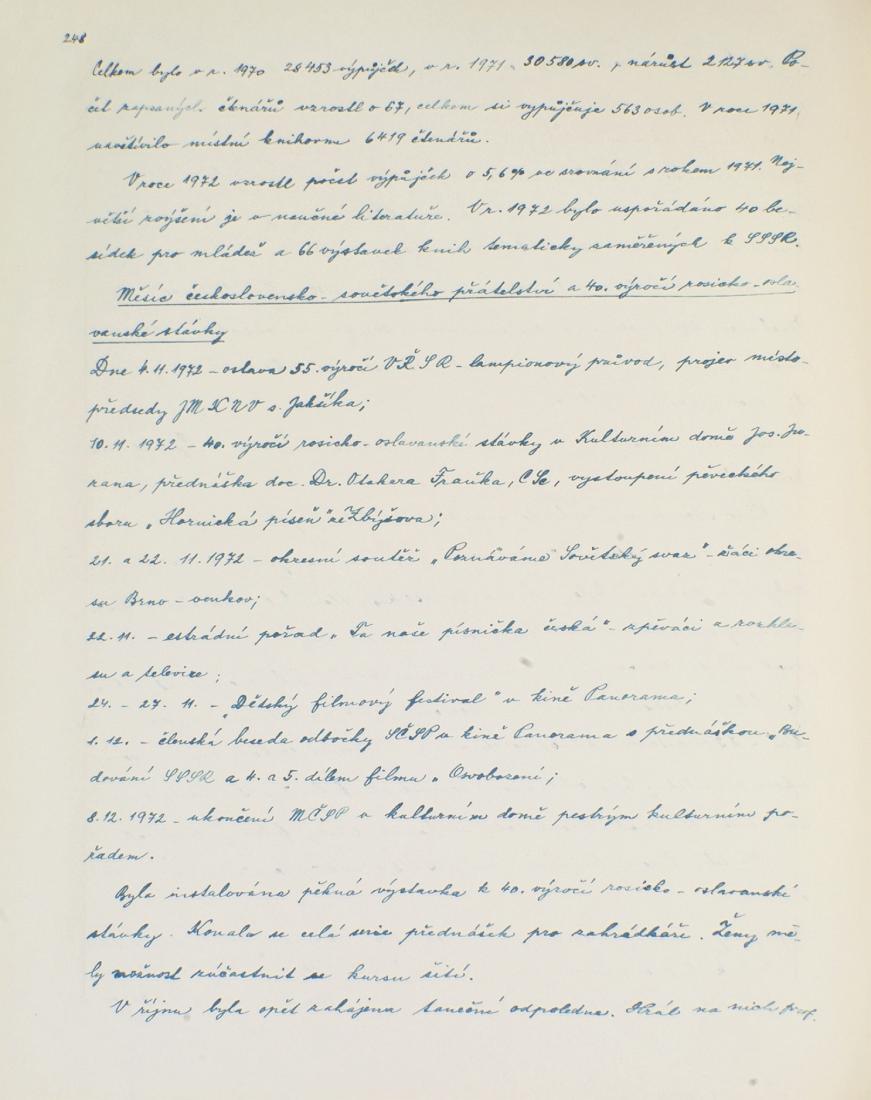 248
Celkem bylo v r. 1970 28453 výpůjček, v r. 1971 30580 sv., nárůst 2127 sv. Po-
čet zapsaných čtenářů vzrostl o 67, celkem si vypůjčuje 563 osob. V roce 1971
navštívilo místní knihovnu 6419 čtenářů.
V roce 1972 vzrostl počet výpůjček o 5,6% ve srovnání s rokem 1971. Nej-
větší zvýšení je v naučné literatuře. V r. 1972 bylo uspořádáno 40 be-
sídek pro mládež a 66 výstavek knih tematicky zaměřených k SSSR.
Měsíc československo-sovětského přátelství a 40. výročí rosicko-osla-
vanské stávky
Dne 4.11.1972 - oslava 55. výročí VŘSR - lampionový průvod, projev místo-
předsedy JMKNV s. Jakšíka;
10.11.1972 - 40. výročí rosicko-oslavanské stávky v Kulturním domě Jos. Ju-
rana, přednáška doc. Dr. Otakara Fraňka, CSc, vystoupení pěveckého
sboru „Hornická píseň" ze Zbýšova;
21. a 22. 11. 1972 - okresní soutěž „Poznáváme Sovětský svaz" - žáci okre-
su Brno - venkov;
22. 11. - estrádní pořad „Ta naše písnička česká" - zpěváci z rozhla-
su a televize;
24. - 27. 11. - „Dětský filmový festival" v kině Panorama;
1. 12. - členská beseda odbočky SČSP v kině Panorama s přednáškou „Bu-
dování SSSR a 4. a 5. dílem filmu „Osvobození;
8.12.1972 - ukončení MČSP v kulturním domě pestrým kulturním po-
řadem.
Byla instalována pěkná výstavka k 40. výročí rosicko-oslavanské
stávky. Konala se celá serie přednášek pro zahrádkáře. Ženy mě-
ly možnost zúčastnit se kursu šití.
V říjnu byla opět zahájena taneční odpoledne. Hrál na nich prof.